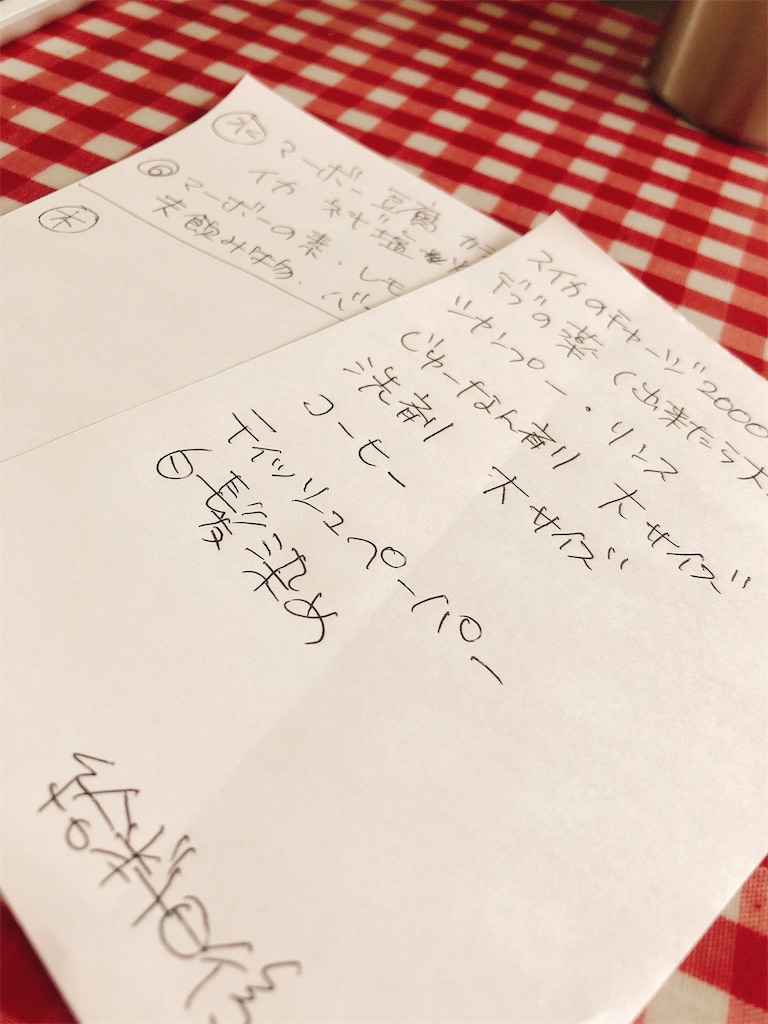 ㊌ マーボー豆腐
イカ ネギ塩
⑥ マーボーの素・レモ
夫飲み物・バ
㊍
スイカのチャージ2000
デブの薬 (出来たら大
シャンプー・リンス
じゅーなん剤 大サイズ
洗剤 大サイズ
コーヒー
ティッシュペーパー
㊀毛染め